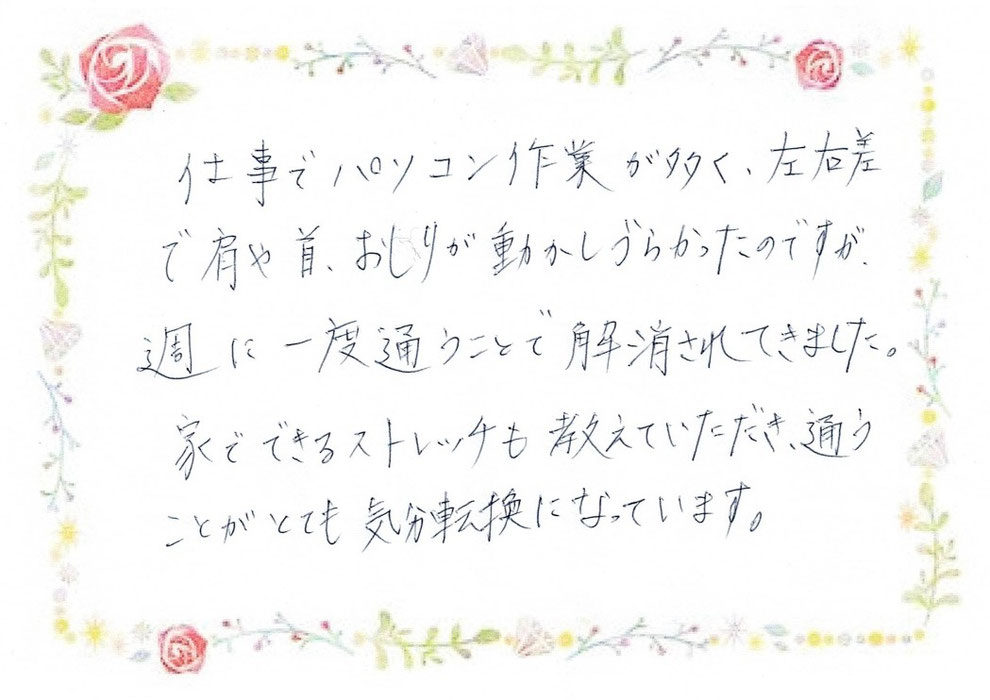 仕事でパソコン作業が多く、左右差
で肩や首、おしりが動かしづらかったのですが、
週に一度通うことで解消されてきました。
家でできるストレッチも教えていただき、通う
ことがとても気分転換になっています。